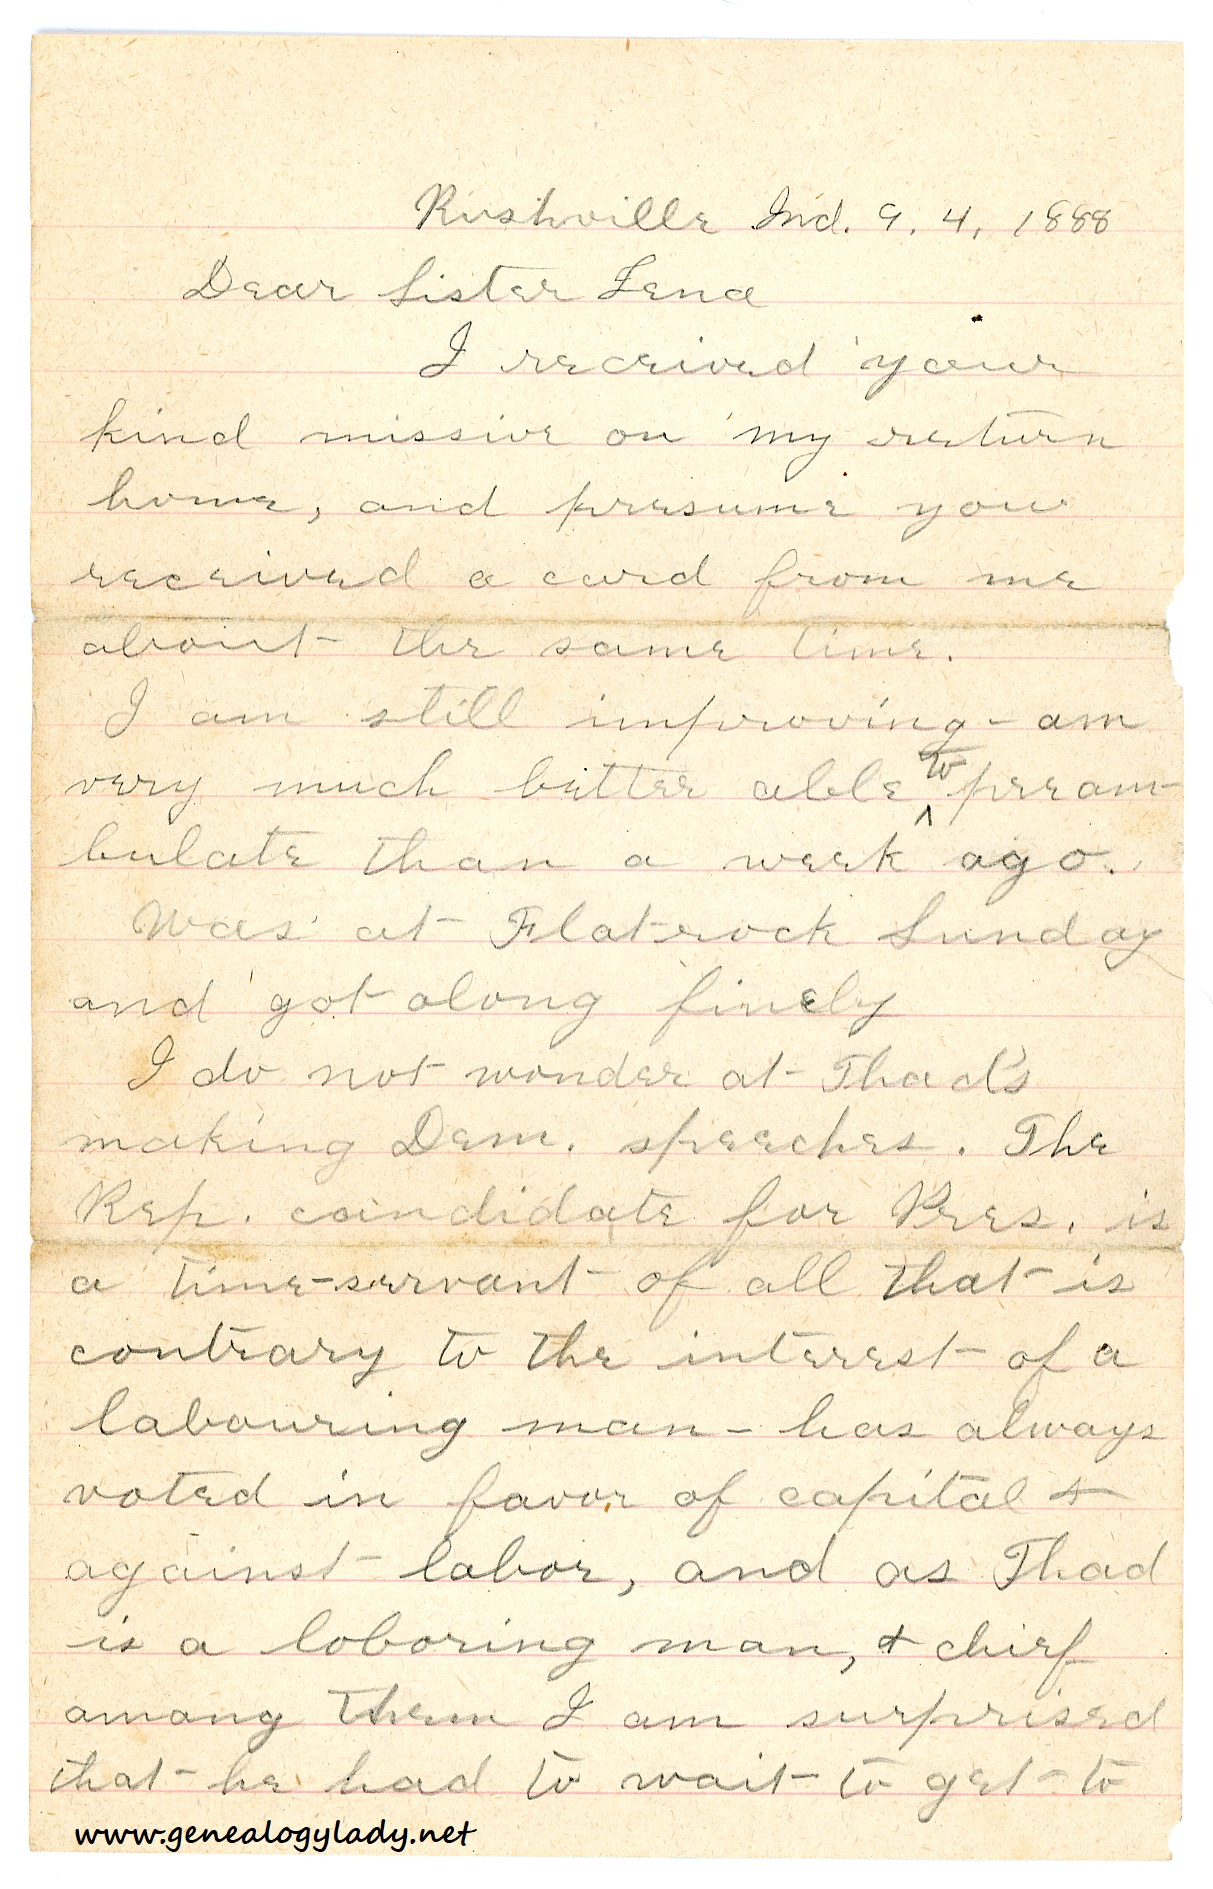 Rushville Ind. 9. 4, 1888
Dear Sister Lena
I received your
kind missive on my return
home, and presume you
received a card from me
about the same time.
I am still improving - am
very much better able to peram-
bulate than a week ago.
Was at Flatrock Sunday
and got along finely
I do not wonder at Thad's
making Dem. speeches. The
Rep. candidate for Pres. is
a time-servant of all that is
contrary to the interest of a
labouring man - has always
voted in favor of capital &
against labor, and as Thad
is a laboring man, & chief
among them I am surprised
that he had to wait to get to
www.genealogylady.net